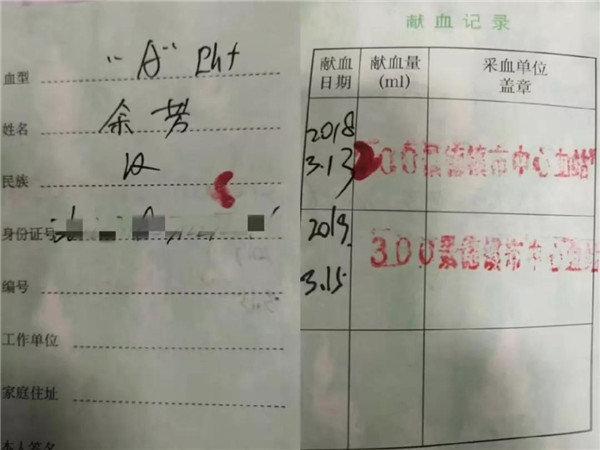 血型 "A" Rh+
姓名 余芳
民族 汉
身份证号
编号
工作单位
家庭住址
本人签名
献血记录
献血日期 献血量(ml) 采血单位盖章
2018 3.13 300景德镇市中心血站
2019 3.15 300景德镇市中心血站